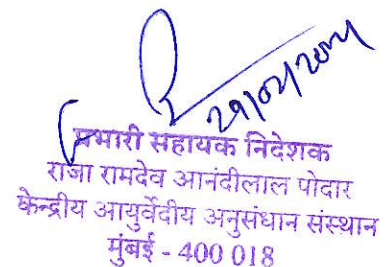 प्रभारी सहायक निदेशक
राजा रामदेव आनंदीलाल पोदार
केन्द्रीय आयुर्वेदीय अनुसंधान संस्थान
मुंबई - 400 018